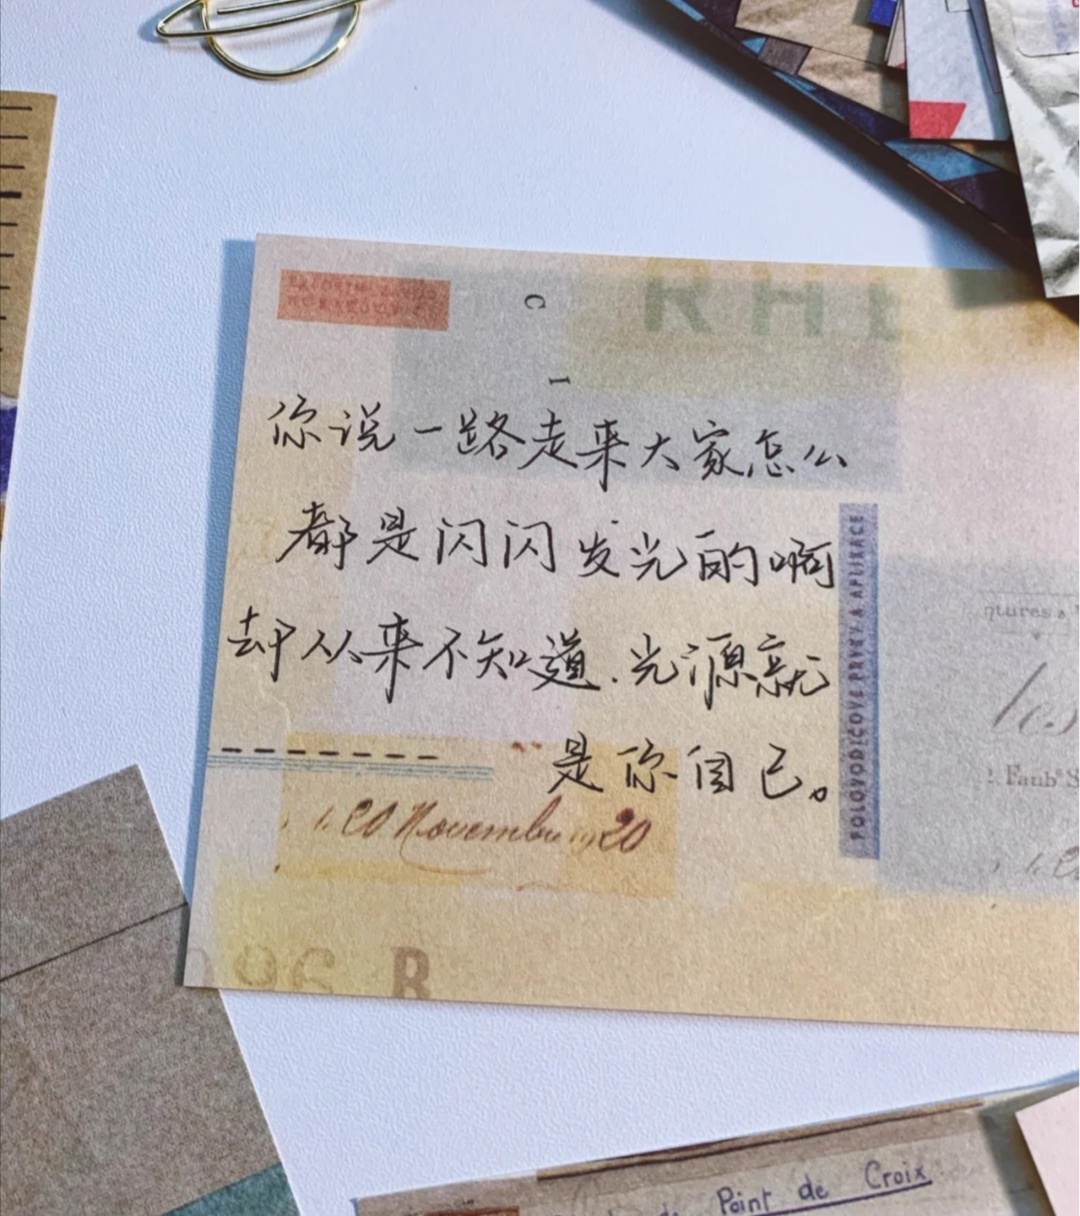 C
I
你说一路走来大家怎么
都是闪闪发光的啊
却从来不知道.光源就
是你自己。
POLOVODIČOVÉ PRVKY A APLIKACE
ntures &
les
Faub^g S
20 Novembre 1920
R
Point de Croix